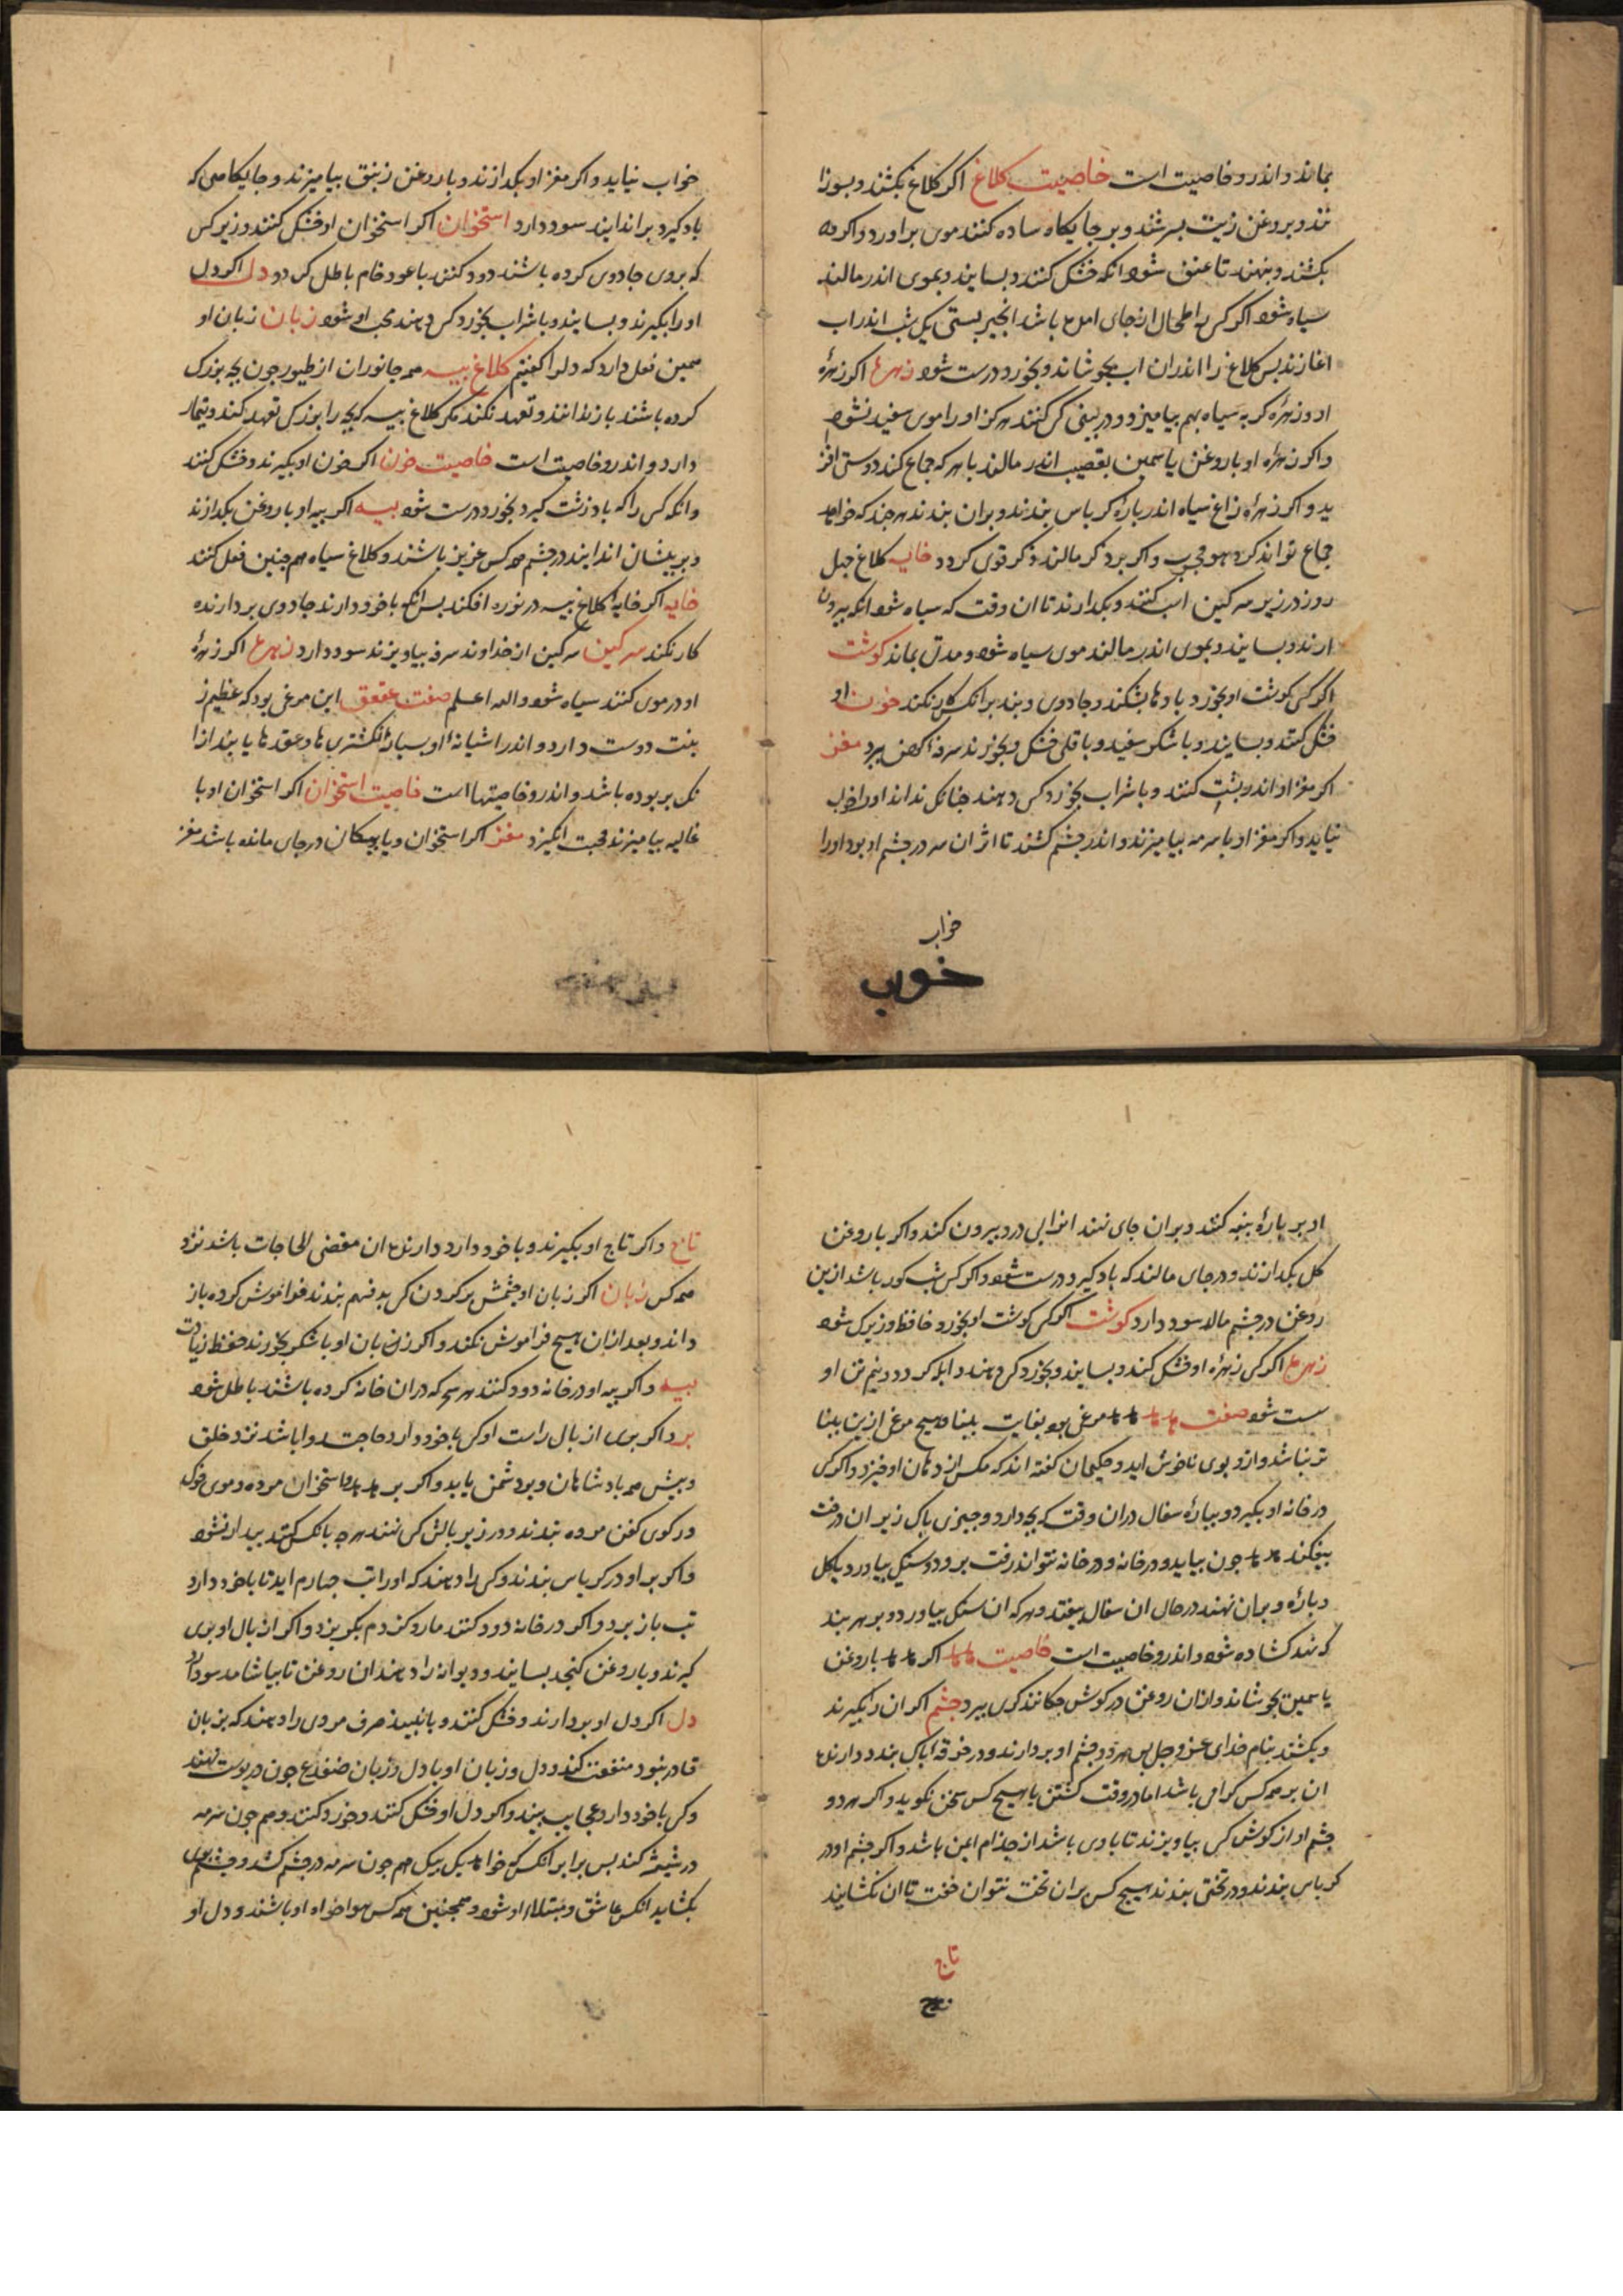 بماند و اندرو خاصیت است خاصیت کلاغ اکر کلاغ بکشند و بسوزا
نند و بروغن زیت بسرشند و بر جایکاه ساده کنند موی براورد و اکر
بکشند و بنهند تا عفن شود انکه خشک کنند و بسایند و بموی اندر مالند
سیاه شود اکر کسی را طحال از جای باشد انجیر بستی یک شب اندر اب
اغارند بس کلاغ را اندران اب بجوشاند و بخورد درست شود زهرهٔ اکر زهرهٔ
او و زهرهٔ کربه سیاه بهم بیامیزد و در بینی کس کنند هرکز او را موی سفید نشود
و اکر زهرهٔ او با روغن یاسمین بقضیب اندر مالند با هر که جماع کند دوستی افز
ید و اکر زهرهٔ زاغ سیاه اندر بارهٔ کرباس بندند و بران بندند هرچند که خواهد
جماع تواند کرد مجرب و اکر بر ذکر مالند ذکر قوی کردد خایه کلاغ چهل
روز در زیر سرکین اسب کنند و بکذارند تا ان وقت که سیاه شود انکه بیرون
ارند و بسایند و بموی اندر مالند موی سیاه شود و مدتی بماند کوشت
اکر کسی کوشت او بخورد بادها بشکند و جادوی و بند بر انکس کار نکند خون او
خشک کنند و بسایند و با شکر سفید و باقلی خشک و بخورند سرفه کهن ببرد مغز
اکر مغز او اندر کنند و با شراب بخورد کس دهند چنانک نداند او را خواب
نیاید و اکر مغز او با سرمه بیامیزند و اندر چشم کشند تا اثر ان سرمه در چشم او بود او را
خواب
خوب
خواب نیاید و اکر مغز او بکدازند و با روغن زنبق بیامیزند و جایکاهی که
باد کیرد براندایند سود دارد استخوان اکر استخوان او خشک کنند و زیر کس
که بروی جادوی کرده باشند دود کنند با عود خام باطل کردد دل اکر دل
او را بکیرند و بسایند و با شراب بخورد کس دهند محب او شود زبان زبان او
همین فعل دارد که دلرا کفتیم کلاغ بیسه همه جانوران از طیور چون بچه بزرک
کرده باشند باز رانند و تعهد نکند مکر کلاغ بیسه که بچه را بزرک تعهد کند و تیمار
دارد و اندرو خاصیت است خاصیت خون اکر خون او بکیرند و خشک کنند
وانکه کس را که باد زشت کیرد بخورد درست شود بیه اکر بیه او با روغن بکدازند
و بر بیشان اندایند در چشم همه کس عزیز باشند و کلاغ سیاه هم چنین فعل کند
خایه اکر خایه کلاغ بیسه در نوره افکند بس انکه با خود دارند جادوی بر دارنده
کار نکند سرکین سرکین از خداوند سرفه بیاویزند سود دارد زهرهٔ اکر زهرهٔ
او در موی کنند سیاه شود والله اعلم صفت عقعق این مرغی بود که عظیم ز
ینت دوست دارد و اندر اشیانهٔ او بسیار انکشتریها و عقدها یابند از ا
نک بربوده باشد و اندرو خاصیتها است خاصیت استخوان اکر استخوان او با
غالیه بیامیزند محبت انکیزد مغز اکر استخوان و یا پیکان در جای مانده باشد مغز
او بر بارهٔ بنبه کنند و بران جای نهند انرا بی درد بیرون کند و اکر با روغن
کل بکدازند و در جای مالند که باد کیرد درست شود و اکر کس شب کور باشد ازین
روغن در چشم مالد سود دارد کوشت اکر کسی کوشت او بخورد حافظ و زیرک شود
زهرهٔ اکر کسی زهرهٔ او خشک کند و بسایند و بخورد کس دهند ابله کردد و نیم تن او
سست شود صفت هدهد هدهد مرغی بود بغایت بینا و هیچ مرغ ازین بینا
تر نباشد و ازو بوی ناخوش اید و حکیمان کفته اند که مکس از دهان او خیزد و اکر کس
در خانه او بکیرد و بیارهٔ سفال دران وقت که بچه دارد و چیزی باک زیر ان درخت
بیفکند هدهد چون بیاید و در خانه نتواند رفت برود و سنکی بیاورد بکل
دبارهٔ و بران نهند در حال ان سفال بیفتد و هر که ان سنک بیاورد و بر هر بند
که نهد کشاده شود و اندرو خاصیت است خاصیت هدهد اکر هدهد با روغن
یاسمین بجوشاند و ازان روغن در کوش چکانند کری ببرد چشم اکر ان را بکیرند
و بکشند بنام خدای عز و جل بس هر دو چشم او بردارند و در خرقهٔ باک بندد دارندهٔ
ان بر همه کس کرامی باشد اما در وقت کشتن با هیچ کس سخن نکوید و اکر هر دو
چشم او از کوش کس بیاویزند تا با وی باشد از جذام ایمن باشد و اکر چشم او در
کرباس بندند و در تختی بندند هیچ کس بران تخت نتوان خفت تا ان نکشایند
تاج
تاج
تاج و اکر تاج او بکیرند و با خود دارد دارندهٔ ان مقضی الحاجات باشد نزد
همه کس زبان اکر زبان او چشمش بر کردن کس بدفهم بندند فراموش کرده باز
داند و بعد ازان هیچ فراموش نکند و اکر زبان او با شکر بخورند حفظ زیادت
بیه و اکر بیه او در خانه دود کنند هر سحر که دران خانه کرده باشند باطل شود
بر و اکر بری از بال راست او کسی با خود دارد حاجت روا باشد نزد خلق
و بیش همه بادشاهان و بر دشمن یابد و اکر بر هدهد و استخوان مرده و موی خوک
در کوی کفن مرده بندند و در زیر بالش کس نهند هر چه بانک کنند بیدار نشود
و اکر بر او در کرباس بندند و کس را دهند که او را تب چهارم اید تا با خود دارد
تب باز برد و اکر در خانه دود کنند مار و کزدم بکریزد و اکر از بال او بری
کیرند و با روغن کنجد بسایند و دیوانه را دهند ان روغن تا بیاشامد سود دارد
دل اکر دل او بردارند و خشک کنند و با نبیذ صرف مردی را دهند که بزنان
قادر نبود منفعت کند و دل و زبان او با دل و زبان ضفدع چون در پوست نهند
و کس با خود دارد عجایب بیند و اکر دل او خشک کنند و خرد کنند و هم چون سرمه
در شیشه کند بس برابر انکس که خواهد یک بیک هم چون سرمه در چشم کشد و چشم بوی
بکشاید انکس عاشق و مبتلاء او شود و همچنین همه کس هواخواه او باشند و دل او